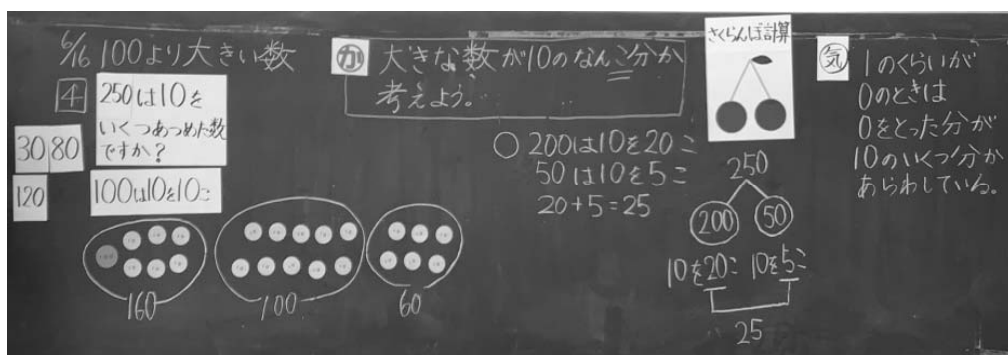 6/16 100より大きい数
4
250は10を
いくつあつめた数
ですか?
30 80
120
100は10を10こ
160
100
60
か
大きな数が10のなんこ分か
考えよう。
○ 200は10を20こ
50は10を5こ
20+5=25
さくらんぼ計算
250
200 50
10を20こ 10を5こ
25
気
1のくらいが
0のときは
0をとった分が
10のいくつ分か
あらわしている。